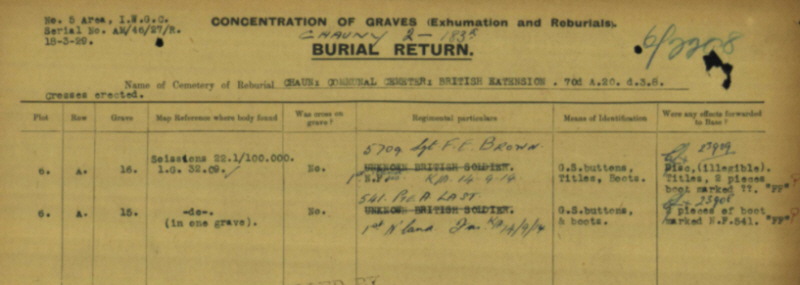 No. 5 Area, I.W.G.C.
Serial No. AM/46/27/R.
18-3-29.
CONCENTRATION OF GRAVES (Exhumation and Reburials).
CHAUNY 2-1835
BURIAL RETURN.
6/22908
Name of Cemetery of Reburial CHAUN: COMMUNAL CEMETER: BRITISH EXTENSION . 70d A.20. d.3.8.
Crosses erected.
Plot Row Grave Map Reference where body found Was cross on grave? Regimental particulars Means of Identification Were any effects forwarded to Base?
5709 Sgt F.E. BROWN. 23909
6. A. 16. Soissions 22.1/100.000. No. UNKNOWN BRITISH SOLDIER. G.S.buttons, Disc,(illegible).
1.G. 32.09. N.F. KIA 14-9-14 Titles, Boots. Titles, 2 pieces
boot marked ??. "PF"
541. Pte A LAST. 23908
6. A. 15. -do-. No. UNKNOWN BRITISH SOLDIER. G.S.buttons, 2 pieces of boot
(in one grave). 1st N'land Fus KIA 14/9/14 & boots. marked N.F.541. "PF"